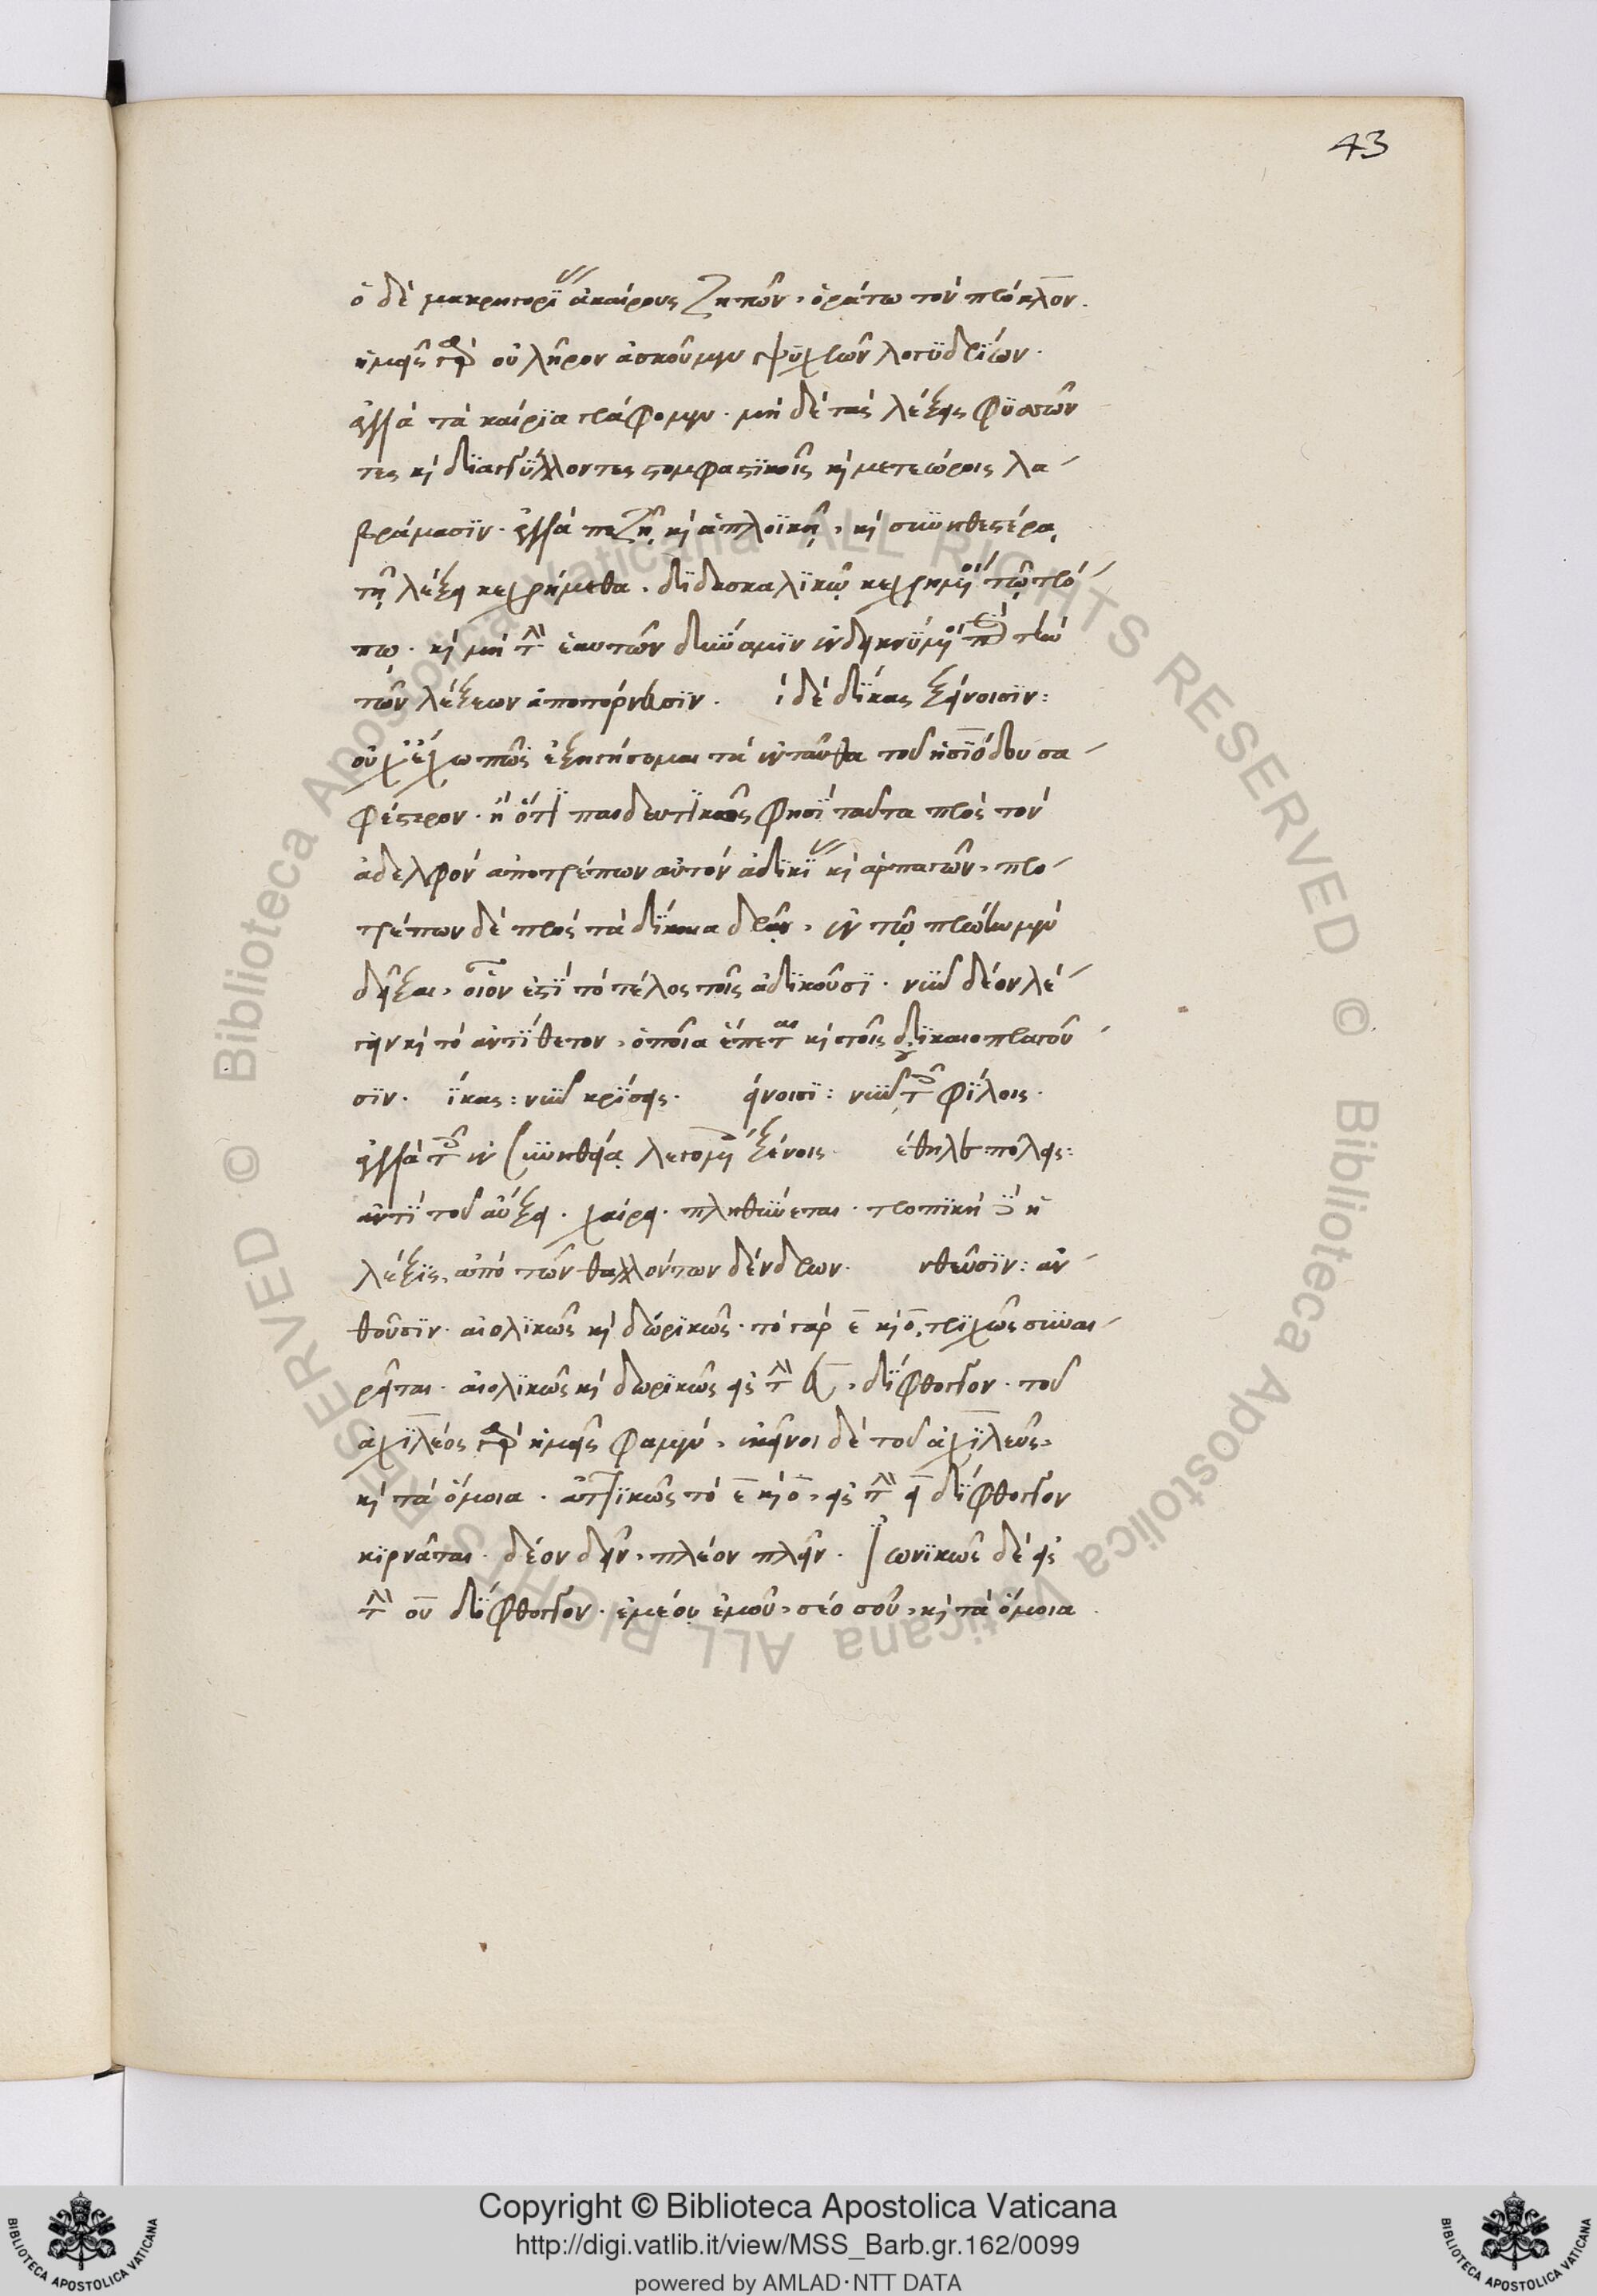 43
ὁ δὲ μακρηγορίας ἀκαίρους ζητῶν, ὁράτω τὸν πρόκλον.
ἡμεῖς γὰρ οὐ λῆρον ἀσκοῦμεν ψυχρῶν λογυδρίων.
ἀλλὰ τὰ καίρια γράφομεν. μὴ δὲ τὰς λέξεις φυσῶν
τες καὶ διαστύλλοντες στομφαστικοῖς καὶ μετεώροις λα
βράμασιν. ἀλλὰ πεζῇ καὶ ἁπλοϊκῇ, καὶ συνηθεστέρᾳ
τῇ λέξει κεχρήμεθα. διδασκαλικῷ κεχρημένοι τῷ τρό
πῳ. καὶ μὴ τὴν ἑαυτῶν δύναμιν ἐνδεικνύμενοι περὶ τὴν
τῶν λέξεων ἀποτόρνευσιν. ἱ δὲ δίκας ξείνοισιν:
οὐχ ἔχω πῶς ἐξηγήσομαι τὰ ἐνταῦθα τοῦ ἡσιόδου σα
φέστερον. ἢ ὅτι παιδευτικῶς φησὶ ταῦτα πρὸς τὸν
ἀδελφὸν ἀποτρέπων αὐτὸν ἀδικίας καὶ ἁρπαγῶν, προ
τρέπων δὲ πρὸς τὰ δίκαια δρᾶν, ἐν τῷ πρώτῳ μὲν
δεῖξαι, οἷον ἐστὶ τὸ τέλος τοῖς ἀδικοῦσι. νῦν δέον λέ
γειν καὶ τὸ ἀντίθετον, ὁποῖα ἕπεται καὶ τοῖς δικαιοπραγοῦ
σιν. ίκας: νῦν κρίσεις. είνοισι: νῦν τοῖς φίλοις.
ἀλλὰ τοῖς ἐν συνηθείᾳ λεγομένοις ξένοις. έθηλε πόλεις:
ἀντὶ τοῦ αὔξει. χαίρει. πληθύνεται. τροπικὴ δὲ ἡ
λέξις, ἀπὸ τῶν θαλλόντων δένδρων. νθεῦσιν: ἀν
θοῦσιν. αἰολικῶς καὶ δωρικῶς. τὸ γὰρ ε καὶ ο, τριχῶς συναι
ρεῖται. αἰολικῶς καὶ δωρικῶς εἰς τὴν ευ, δίφθογγον. τοῦ
ἀχιλέος γὰρ ἡμεῖς φαμὲν, ἐκεῖνοι δὲ τοῦ ἀχιλεῦς,
καὶ τὰ ὅμοια. ἀττικῶς τὸ ε καὶ ο, εἰς τὴν ει δίφθογγον
κιρνᾶται. δέον δεῖν, πλέον πλεῖν. ἰωνικῶς δὲ εἰς
τὴν ου δίφθογγον. ἐμέου ἐμοῦ, σέο σοῦ, καὶ τὰ ὅμοια.
Copyright © Biblioteca Apostolica Vaticana
http://digi.vatlib.it/view/MSS_Barb.gr.162/0099
powered by AMLAD·NTT DATA
BIBLIOTECA APOSTOLICA VATICANA
BIBLIOTECA APOSTOLICA VATICANA
© Biblioteca Apostolica Vaticana ALL RIGHTS RESERVED
© Biblioteca Apostolica Vaticana ALL RIGHTS RESERVED